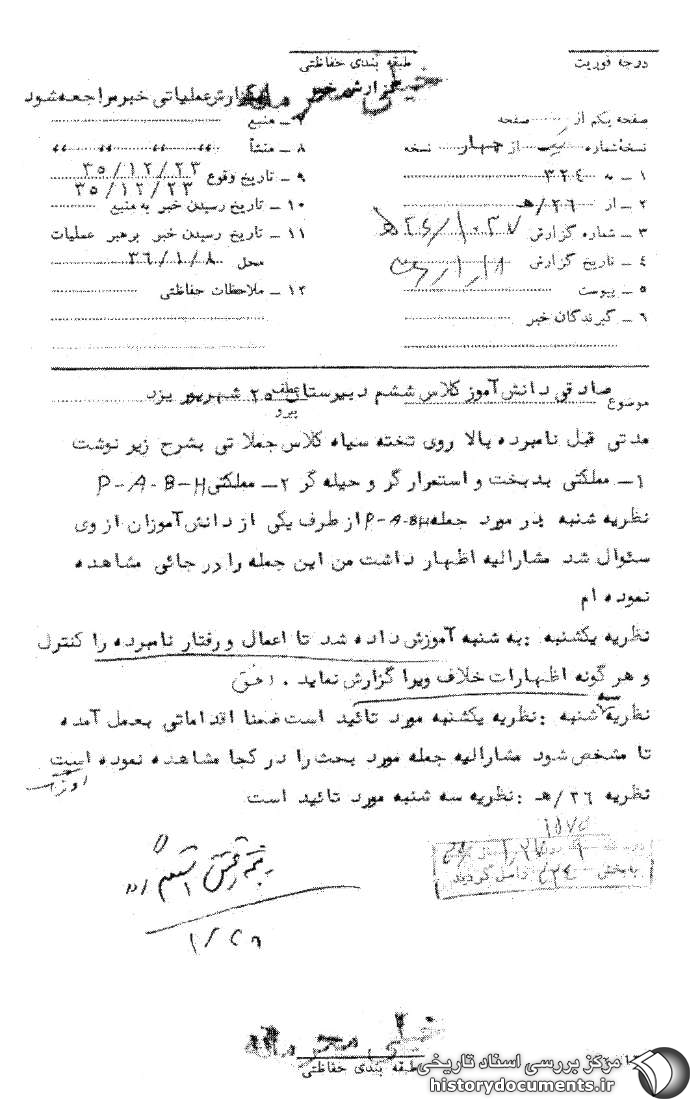 درجه فوریت
طبقه بندی حفاظتی
خیلی محرمانه
گزارش خبر
گزارش عملیاتی خبر مراجعه شود
صفحه یکم از صفحه
نسخه شماره یک از چهار نسخه
۱ ـ به ۳۲۴
۲ ـ از ۲۶/هـ
۳ ـ شماره گزارش ۲۶/۱۰۳۷هـ
۴ ـ تاریخ گزارش
۵ ـ پیوست
۶ ـ گیرندگان خبر
۷ ـ منبع
۸ ـ منشأ
۹ ـ تاریخ وقوع ۳۵/۱۲/۲۳
۱۰ ـ تاریخ رسیدن خبر به منبع ۳۵/۱۲/۲۳
۱۱ ـ تاریخ رسیدن خبر برهبر عملیات
محل ۳۶/۱/۸
۱۲ ـ ملاحظات حفاظتی
موضوع صادقی دانش آموز کلاس ششم دبیرستان ۲۵ شهریور یزد
عطف
پیرو
مدتی قبل نامبرده بالا روی تخته سیاه کلاس جملاتی بشرح زیر نوشت
۱ـ مملکتی بدبخت و استعمارگر و حیله گر ۲ـ مملکتی P-A-B-H
نظریه شنبه در مورد جمله P-A-BH از طرف یکی از دانش آموزان از وی
سئوال شد مشارالیه اظهار داشت من این جمله را در جائی مشاهده
نموده ام
نظریه یکشنبه : به شنبه آموزش داده شد تا اعمال و رفتار نامبرده را کنترل
و هر گونه اظهارات خلاف ویرا گزارش نماید . افق
نظریه سه شنبه : نظریه یکشنبه مورد تائید است ضمنا اقداماتی بعمل آمده
تا مشخص شود مشارالیه جمله مورد بحث را در کجا مشاهده نموده است
نظریه ۲۶/هـ : نظریه سه شنبه مورد تائید است
به بخش ۳۲۴ واصل گردید
۱/۲۸
خیلی محرمانه
طبقه بندی حفاظتی
مرکز بررسی اسناد تاریخی
historydocuments.ir